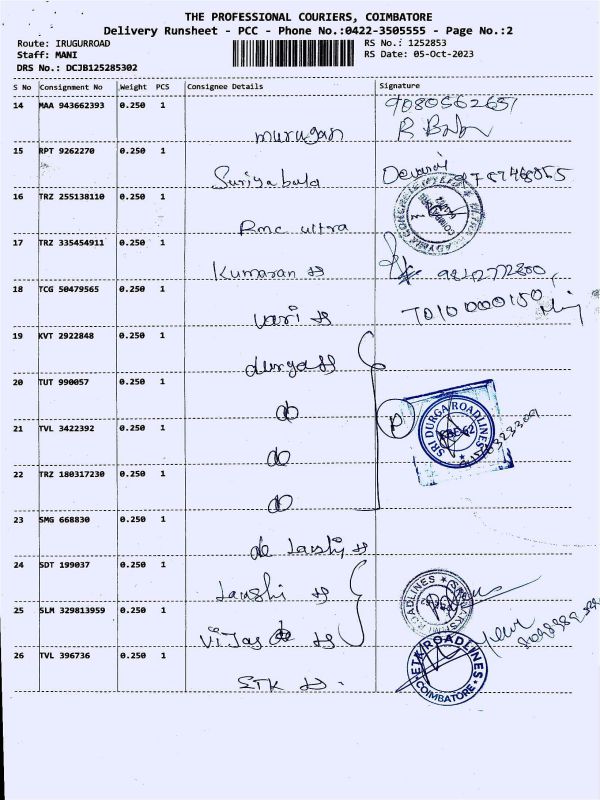 THE PROFESSIONAL COURIERS, COIMBATORE
Delivery Runsheet - PCC - Phone No.:0422-3505555 - Page No.:2
Route: IRUGURROAD RS No.: 1252853
Staff: MANI RS Date: 05-Oct-2023
DRS No.: DCJB125285302
S No Consignment No Weight PCS Consignee Details Signature
14 MAA 943662393 0.250 1
murugan 9080562657
15 RPT 9262270 0.250 1
Suriyabala
16 TRZ 255138110 0.250 1
Rmc ultra
17 TRZ 335454911 0.250 1
Kumaran
18 TCG 50479565 0.250 1
vari
19 KVT 2922848 0.250 1
durga
20 TUT 990057 0.250 1
do
21 TVL 3422392 0.250 1
P
SRI DURGA ROADLINES
do
22 TRZ 180317230 0.250 1
do
23 SMG 668830 0.250 1
24 SDT 199037 0.250 1
25 SLM 329813959 0.250 1
26 TVL 396736 0.250 1
ETK
ETK ROADLINES
COIMBATORE